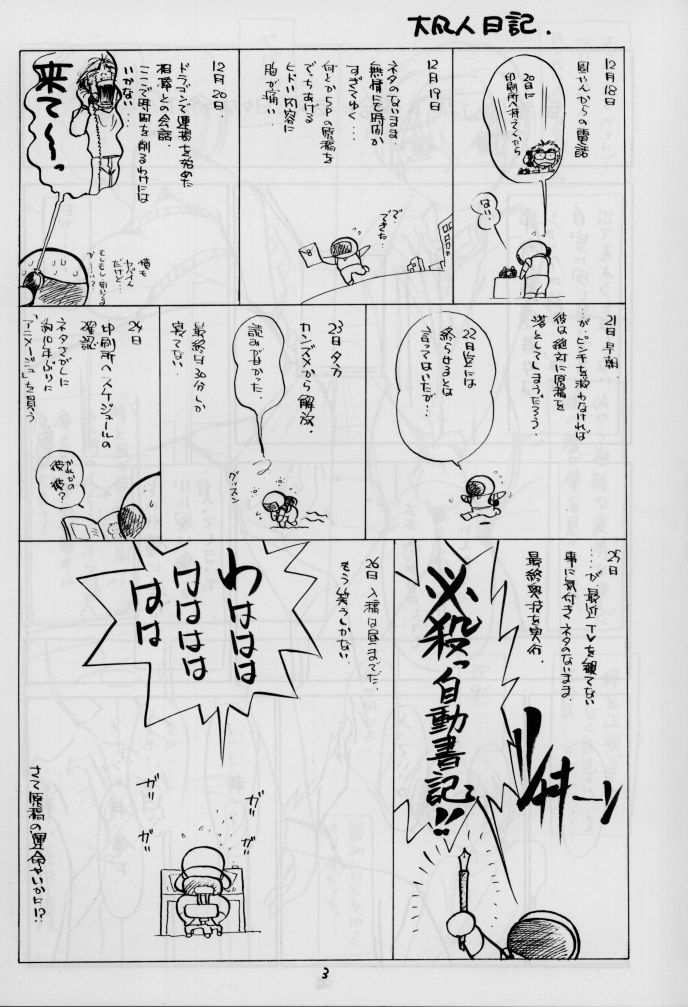 大凡人日記.
12月18日
国やんからの電話
20日に
印刷所へ消えてくから
はい…
12月19日
ネタのないまま
無情にも時間が
すぎてゆく…
何とか5Pの原稿を
でっちあげる
ヒドい内容に
胸が痛い
で、
できた…
12月20日.
ドラゴンで連載を始めた
相棒との会話.
ここで時間を削るわけには
いかない…
来て〜っ
俺も
ヤバイん
だけど…
21日早朝
…が、ピンチを救わなければ
彼は絶対に原稿を
落としてしまうだろう.
22日迄には
終らせるとは
言ってはいたが…
23日夕方
カンヅメから解放.
最終は30分しか
寝てない
読みが甘かった.
グッスン
24日
印刷所へスケジュールの
確認
ネタさがしに
約10年ぶりに
「アニメージュ」を買う
25日
……が、最近TVを観てない
事に気付きネタのないまま.
最終奥技を実行.
必殺っ
自動書記っ!!
26日 入稿は昼までだ.
もう笑うしかない.
わははは
けははは
はは
ガ!!
ガ!!
ガ!!
ガ!!
さて原稿の運命やいかに!?
3